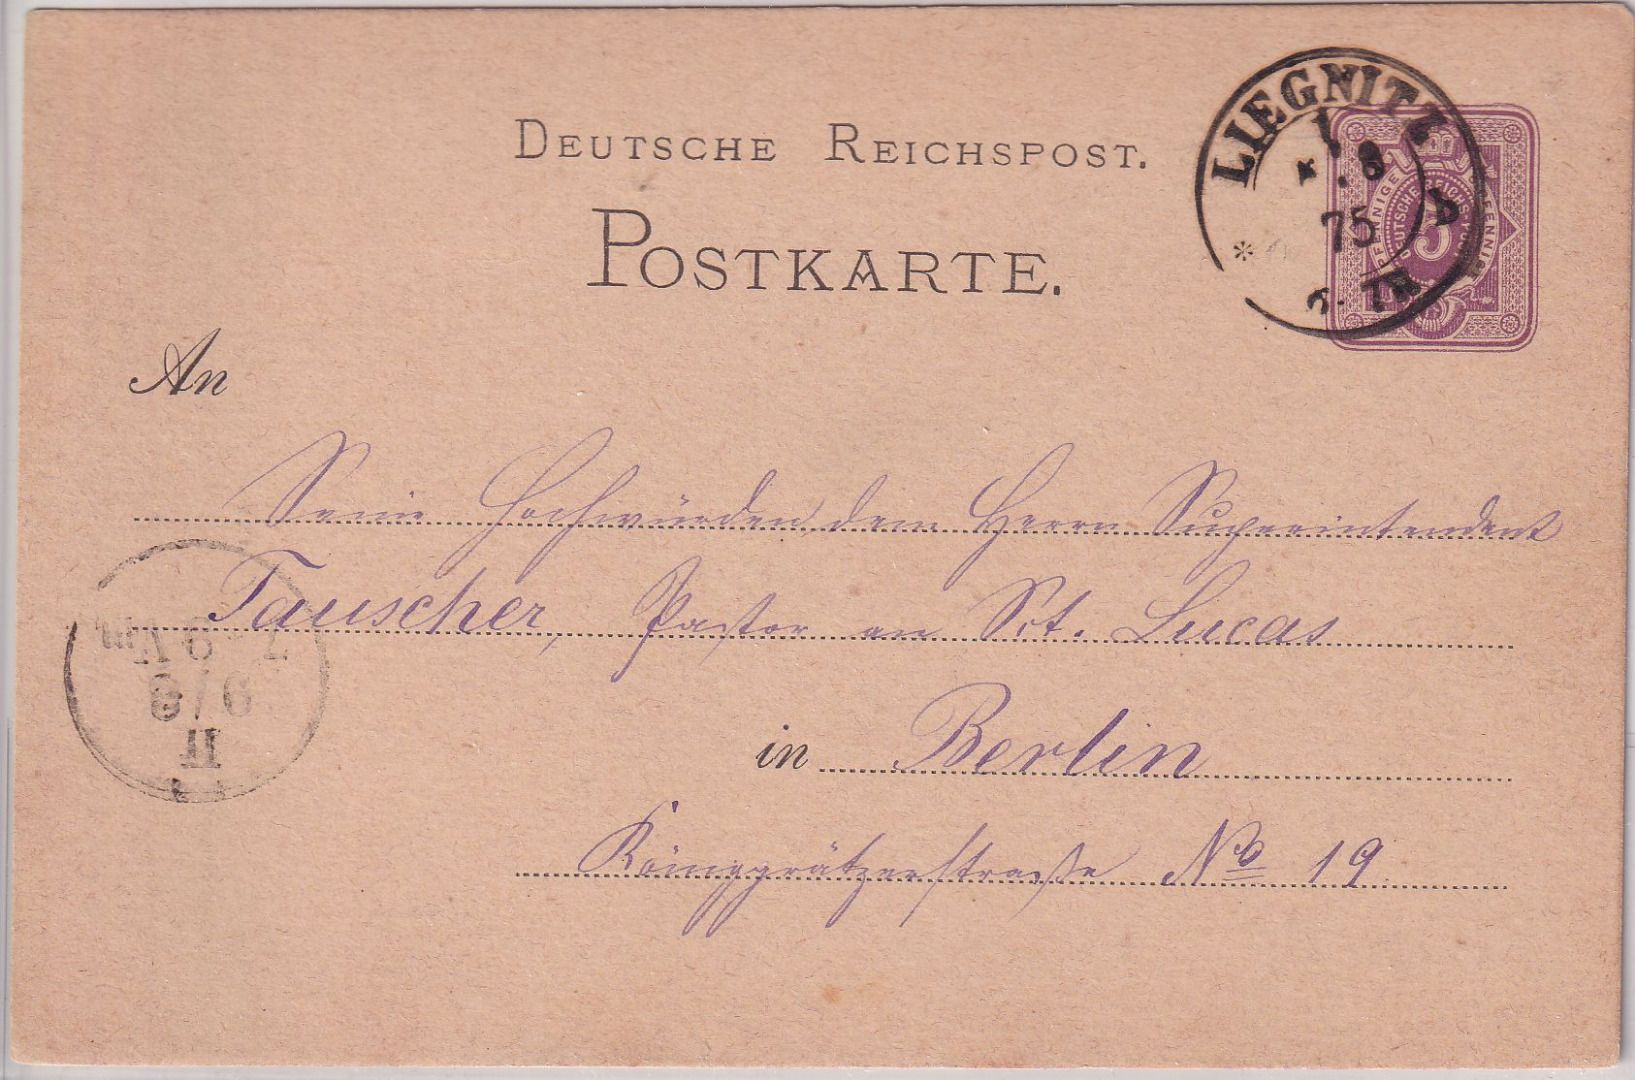 DEUTSCHE REICHSPOST.
POSTKARTE.
LIEGNITZ
.8
75
5 PFENNIGE
DEUTSCHE REICHS-POST
An
Seine Hochwürden dem Herrn Superintendent
Tauscher, Pastor an Sct. Lucas
in Berlin
Königgrätzerstraße No 19
7-9 Vm
9/8
II